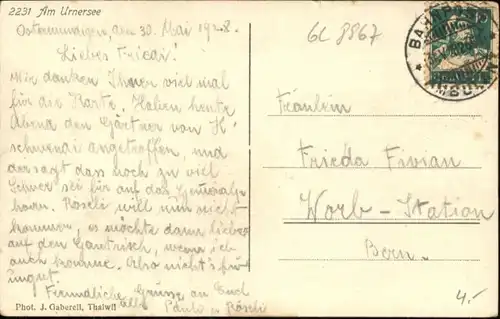 2231 Am Urnersee
Ostermundigen, den 30. Mai 1928.
6L 8867
Liebes Friedi!
Wir danken Ihnen viel mal
für die Karte. Haben heute
Abend den Gärtner von H'
schwendi angetroffen, und
der sagt dass noch zu viel
Schnee sei für auf das
horn. Roseli will nun nicht
kommen, es möchte dann lieber
auf den Gantrisch, wenn ich
auch komme. Also nicht's für
ungut.
Freundliche Grüsse an Euch
alle Paula u. Röseli
Phot. J. Gaberell, Thalwil
Fräulein
Frieda Fivian
Worb-Station
Bern.
4.-